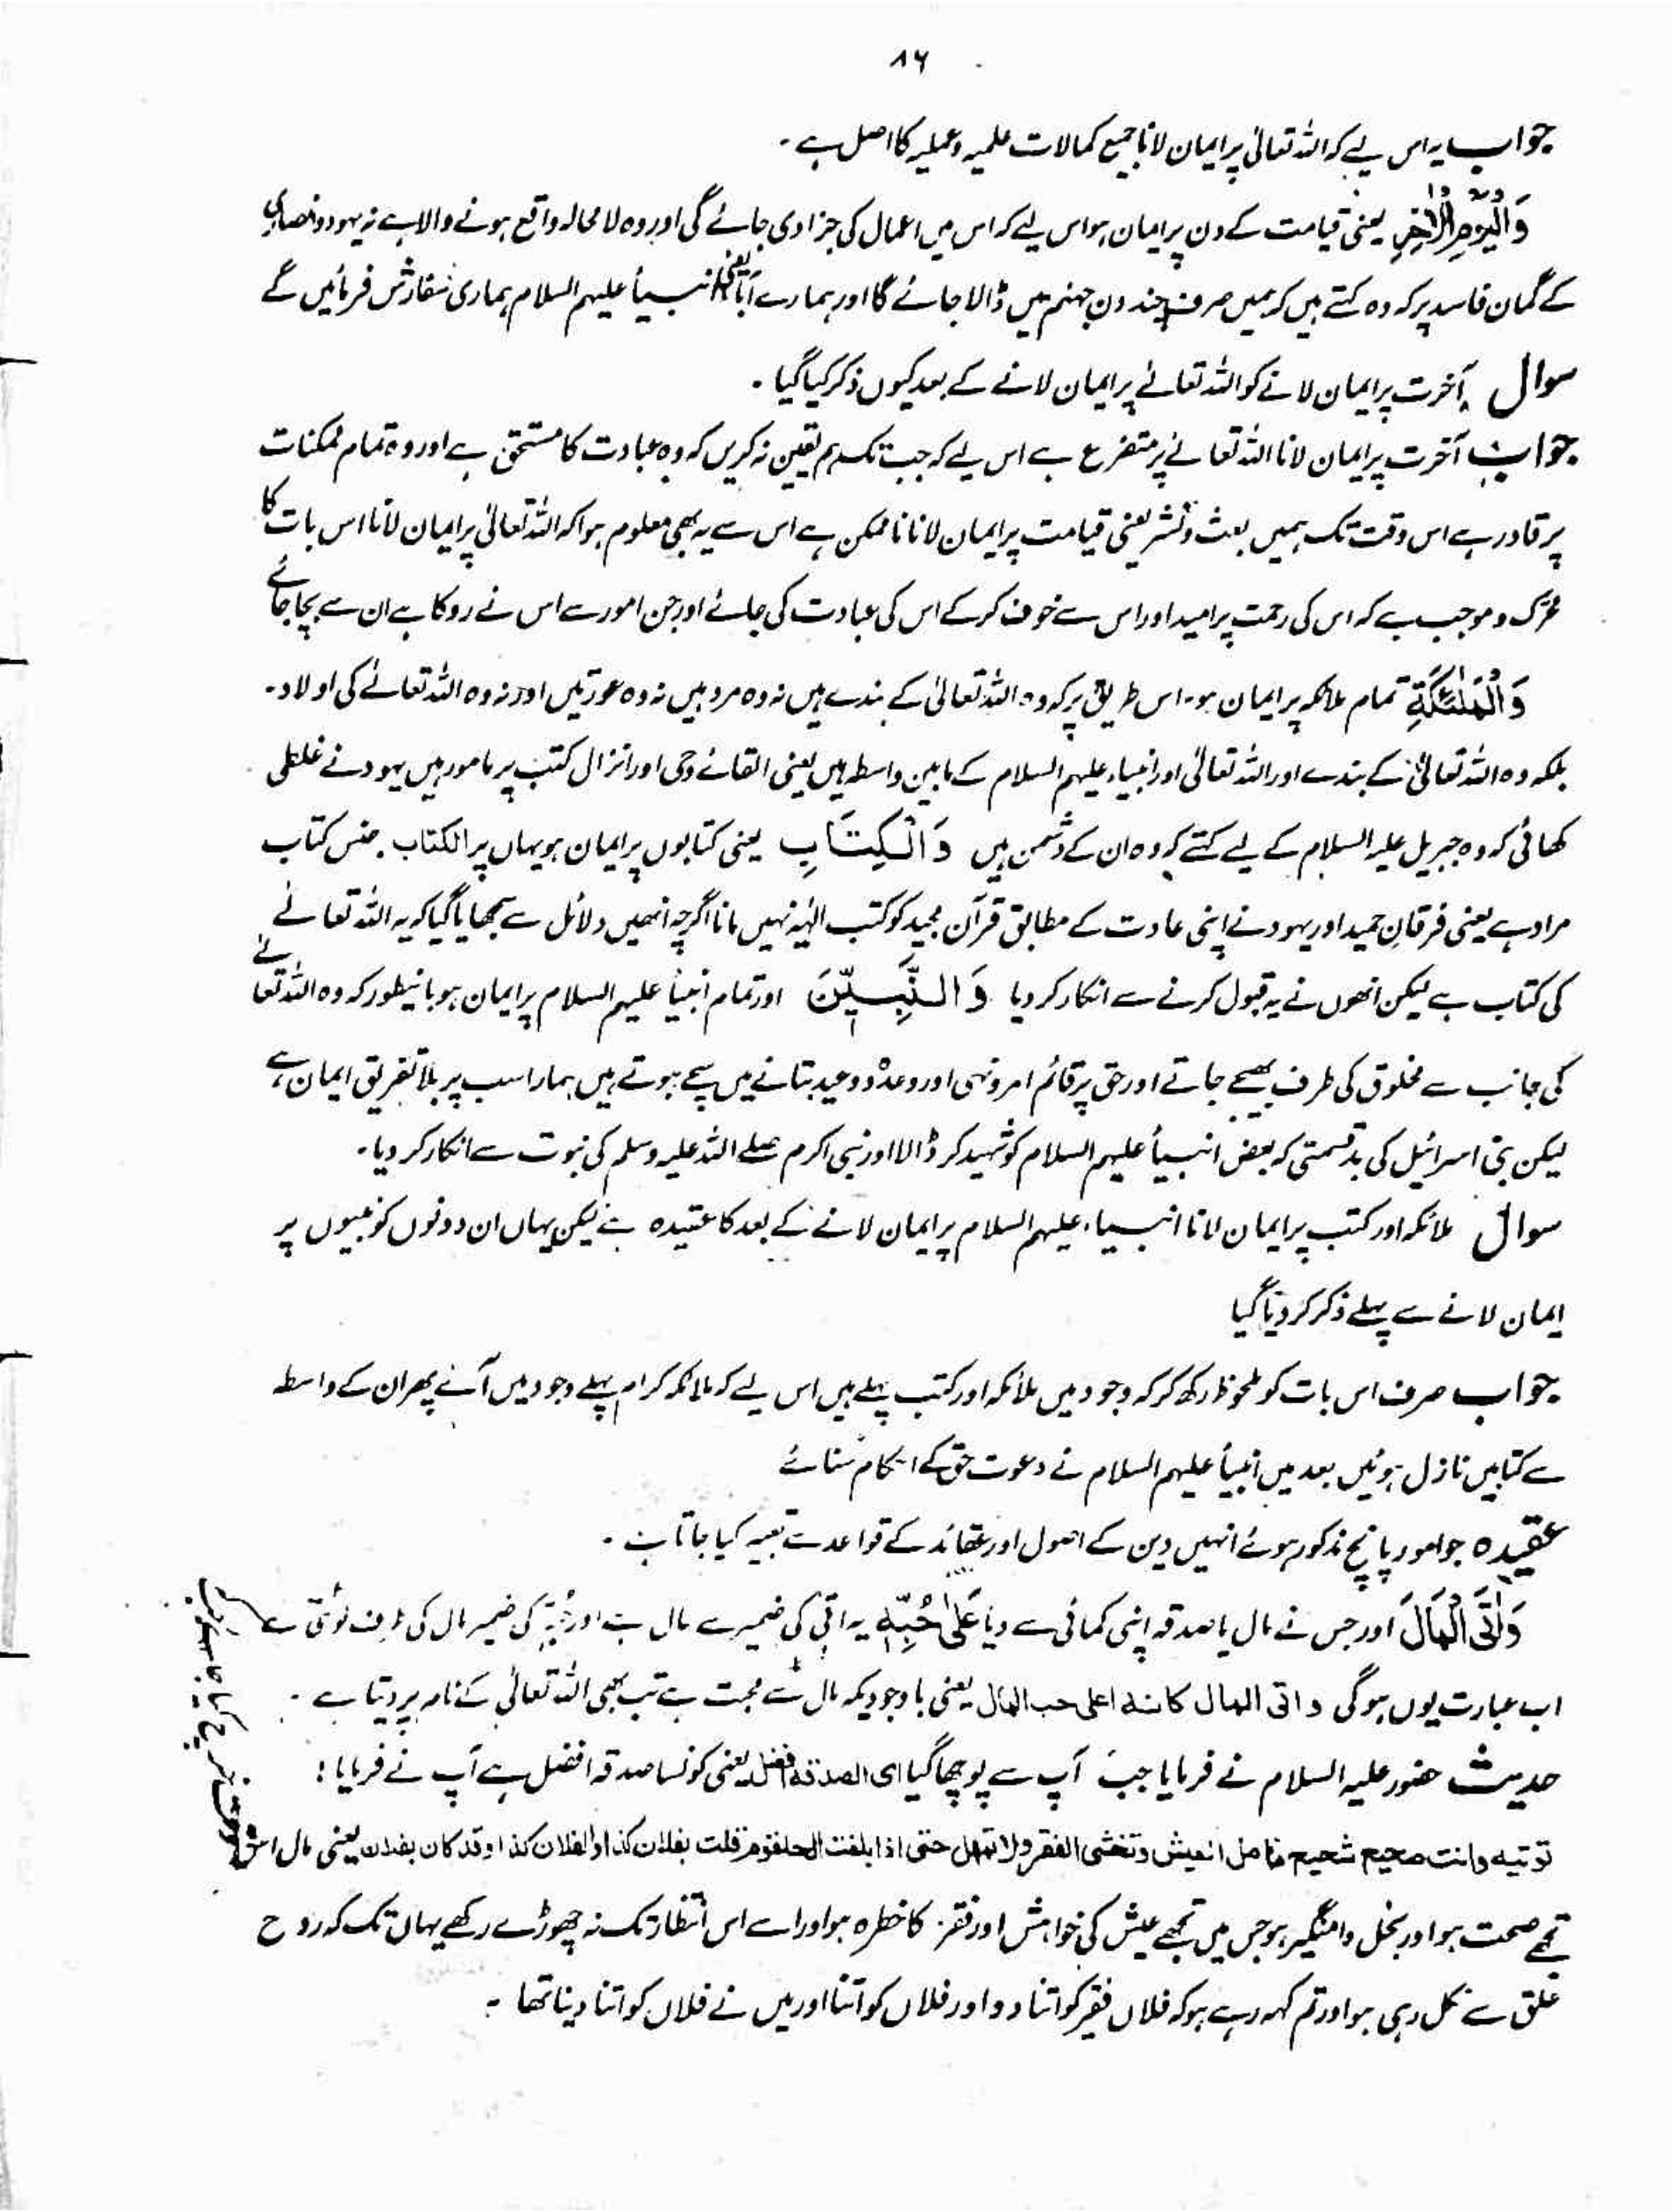 ۸۶
جواب یہ اس لیے کہ اللہ تعالیٰ پر ایمان لانا جمیع کمالات علمیہ وعملیہ کا اصل ہے۔
وَالْیَوْمِ الْاٰخِرِ یعنی قیامت کے دن پر ایمان ہو اس لیے کہ اس میں اعمال کی جزا دی جائے گی اور وہ لا محالہ واقع ہونے والا ہے نہ یہود و نصاریٰ
کے گمان فاسد پر کہ وہ کہتے ہیں کہ ہمیں صرف چند دن جہنم میں ڈالا جائے گا اور ہمارے آبا یعنی انبیأ علیہم السلام ہماری سفارش فرمائیں گے
سوال آخرت پر ایمان لانے کو اللہ تعالےٰ پر ایمان لانے کے بعد کیوں ذکر کیا گیا۔
جواب آخرت پر ایمان لانا اللہ تعالےٰ پر متفرع ہے اس لیے کہ جب تک ہم یقین نہ کریں کہ وہ عبادت کا مستحق ہے اور وہ تمام ممکنات
پر قادر ہے اس وقت تک ہمیں بعث ونشر یعنی قیامت پر ایمان لانا نا ممکن ہے اس سے یہ بھی معلوم ہوا کہ اللہ تعالیٰ پر ایمان لانا اس بات کا
محرک و موجب ہے کہ اس کی رحمت پر امید اور اس سے خوف کر کے اس کی عبادت کی جائے اور جن امور سے اس نے روکا ہے ان سے بچا جائے
وَالْمَلٰٓئِكَةِ تمام ملائکہ پر ایمان ہو۔ اس طریق پر کہ وہ اللہ تعالیٰ کے بندے ہیں نہ وہ مرد ہیں نہ وہ عورتیں اور نہ وہ اللہ تعالےٰ کی اولاد۔
بلکہ وہ اللہ تعالیٰ کے بندے اور اللہ تعالیٰ اور انبیاء علیہم السلام کے مابین واسطہ ہیں یعنی القائے وحی اور انزال کتب پر مامور ہیں یہود نے غلطی
کھائی کہ وہ جبریل علیہ السلام کے لیے کہتے کہ وہ ان کے دشمن ہیں وَالْكِتَابِ یعنی کتابوں پر ایمان ہو یہاں پر الکتاب۔ جنس کتاب
مراد ہے یعنی فرقان حمید اور یہود نے اپنی عادت کے مطابق قرآن مجید کو کتب الہیہ نہیں مانا اگرچہ انھیں دلائل سے سمجھایا گیا کہ یہ اللہ تعالےٰ
کی کتاب ہے لیکن انھوں نے یہ قبول کرنے سے انکار کر دیا وَالنَّبِیِّنَ اور تمام انبیأ علیہم السلام پر ایمان ہو بانیطور کہ وہ اللہ تعالےٰ
کی جانب سے مخلوق کی طرف بھیجے جاتے اور حق پر قائم امر ونہی اور وعدہ ووعید بتانے میں سچے ہوتے ہیں ہمارا سب پر بلا تفریق ایمان ہے
لیکن بنی اسرائیل کی بد قسمتی کہ بعض انبیأ علیہم السلام کو شہید کر ڈالا اور نبی اکرم صلے اللہ علیہ وسلم کی نبوت سے انکار کر دیا۔
سوال ملائکہ اور کتب پر ایمان لانا انبیاء علیہم السلام پر ایمان لانے کے بعد کا عقیدہ ہے لیکن یہاں ان دونوں کو نبیوں پر
ایمان لانے سے پہلے ذکر کر دیا گیا
جواب صرف اس بات کو ملحوظ رکھ کر کہ وجود میں ملائکہ اور کتب پہلے ہیں اس لیے کہ ملائکہ کرام پہلے وجود میں آئے پھر ان کے واسطہ
سے کتابیں نازل ہوئیں بعد میں انبیأ علیہم السلام نے دعوت حق کے احکام سنائے
عقیدہ جو امور پانچ مذکور ہوئے انہیں دین کے اصول اور عقائد کے قواعد سے تعبیر کیا جاتا ہے۔
وَاٰتَى الْمَالَ اور جس نے مال یا صدقہ اپنی کمائی سے دیا عَلٰى حُبِّهٖ یہ اٰتی کی ضمیر سے حال ہے اور حُبِّهٖ کی ضمیر مال کی طرف لوٹتی ہے
اب عبارت یوں ہوگی واتی المال کائنا علی حب المال یعنی باوجودیکہ مال سے محبت ہے تب بھی اللہ تعالیٰ کے نام پر دیتا ہے۔
حدیث حضور علیہ السلام نے فرمایا جب آپ سے پوچھا گیا ای الصدقۃ افضل یعنی کونسا صدقہ افضل ہے آپ نے فرمایا:
توتیہ وانت صحیح شحیح تامل العیش وتخشی الفقر ولا تمہل حتی اذا بلغت الحلقوم قلت بفلان کذا ولفلان کذا وقد کان بفلان یعنی مال اس وقت خرچ کیا جائے جب
تجھے صحت ہو اور بخل دامنگیر ہو جس میں تجھے عیش کی خواہش اور فقر کا خطرہ ہو اور اسے اس انتظار تک نہ چھوڑے رکھے یہاں تک کہ روح
حلق سے نکل رہی ہو اور تم کہہ رہے ہو کہ فلاں فقیر کو اتنا دو اور فلاں کو اتنا اور میں نے فلاں کو اتنا دینا تھا۔